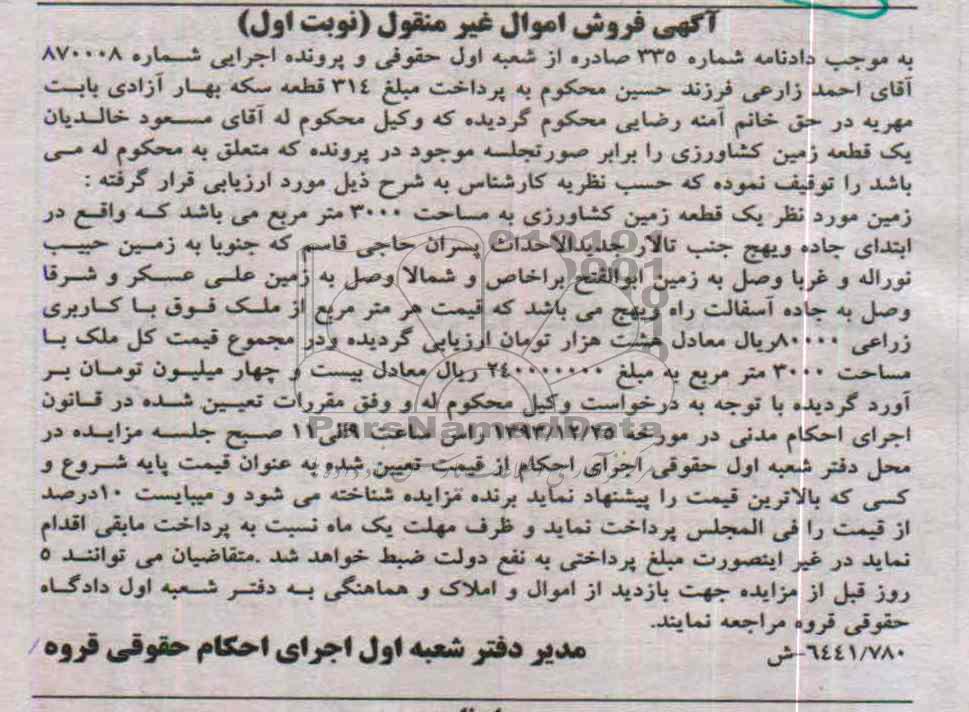 آگهی فروش اموال غیر منقول (نوبت اول)
به موجب دادنامه شماره ۳۳۵ صادره از شعبه اول حقوقی و پرونده اجرایی شماره ۸۷۰۰۰۸
آقای احمد زارعی فرزند حسین محکوم به پرداخت مبلغ ۳۱٤ قطعه سکه بهار آزادی بابت
مهریه در حق خانم آمنه رضایی محکوم گردیده که وکیل محکوم له آقای مسعود خالدیان
یک قطعه زمین کشاورزی را برابر صورتجلسه موجود در پرونده که متعلق به محکوم له می
باشد را توقیف نموده که حسب نظریه کارشناس به شرح ذیل مورد ارزیابی قرار گرفته :
زمین مورد نظر یک قطعه زمین کشاورزی به مساحت ۳۰۰۰ متر مربع می باشد که واقع در
ابتدای جاده ویهج جنب تالار جدیدالاحداث پسران حاجی قاسم که جنوبا به زمین حبیب
نوراله و غربا وصل به زمین ابوالفتح براخاص و شمالا وصل به زمین علی عسکر و شرقا
وصل به جاده آسفالت راه ویهج می باشد که قیمت هر متر مربع از ملک فوق با کاربری
زراعی ۸۰۰۰۰ریال معادل هشت هزار تومان ارزیابی گردیده ودر مجموع قیمت کل ملک با
مساحت ۳۰۰۰ متر مربع به مبلغ ۲٤۰۰۰۰۰۰۰ ریال معادل بیست و چهار میلیون تومان بر
آورد گردیده با توجه به درخواست وکیل محکوم له و وفق مقررات تعیین شده در قانون
اجرای احکام مدنی در مورخه ۱۳۹۳/۱۲/۲۵ راس ساعت ۹الی۱۱ صبح جلسه مزایده در
محل دفتر شعبه اول حقوقی اجرای احکام از قیمت تعیین شده به عنوان قیمت پایه شروع و
کسی که بالاترین قیمت را پیشنهاد نماید برنده مزایده شناخته می شود و میبایست ۱۰درصد
از قیمت را فی المجلس پرداخت نماید و ظرف مهلت یک ماه نسبت به پرداخت مابقی اقدام
نماید در غیر اینصورت مبلغ پرداختی به نفع دولت ضبط خواهد شد .متقاضیان می توانند ۵
روز قبل از مزایده جهت بازدید از اموال و املاک و هماهنگی به دفتر شعبه اول دادگاه
حقوقی قروه مراجعه نمایند.
۶٤٤۱/۷۸۰-ش
مدیر دفتر شعبه اول اجرای احکام حقوقی قروه
ParsNamadData